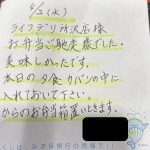 4/2(水)
ライフデリ所沢店様
お弁当ご馳走様でした。
美味しかったです。
本日の夕食カバンの中に
入れておいて下さい。
からのお弁当箱置いときます。